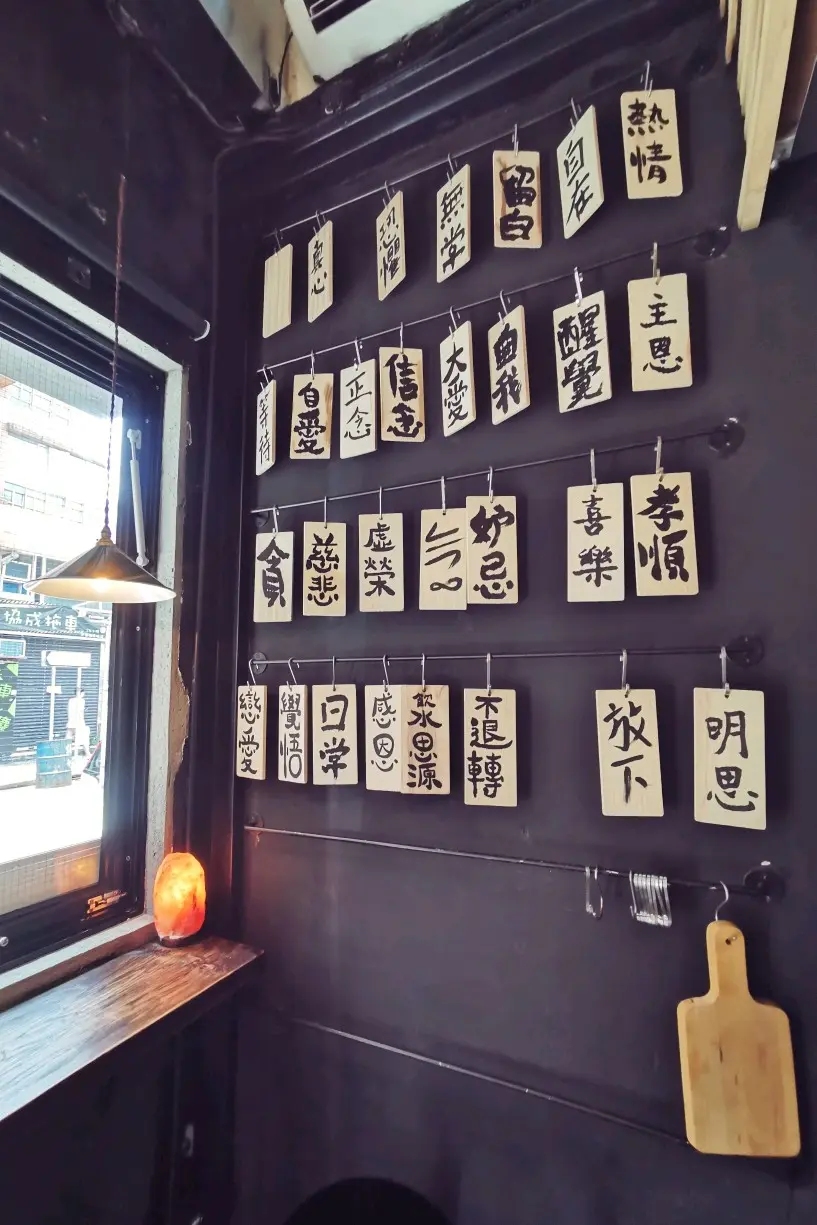 真心
恐懼
無常
留白
自在
熱情
等待
自愛
正念
信念
大愛
自我
醒覺
主恩
貪
慈悲
虛榮
妒忌
喜樂
孝順
戀愛
覺悟
日常
感恩
飲水思源
不退轉
放下
明思
協成拖車